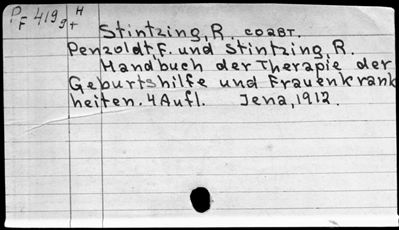 PF 4193 H+
Stintzing, R. соавт.
Penzoldt, F. und Stintzing, R.
Handbuch der Therapie der
Geburtshilfe und Frauenkrank
heiten. 4 Aufl. Jena, 1912.